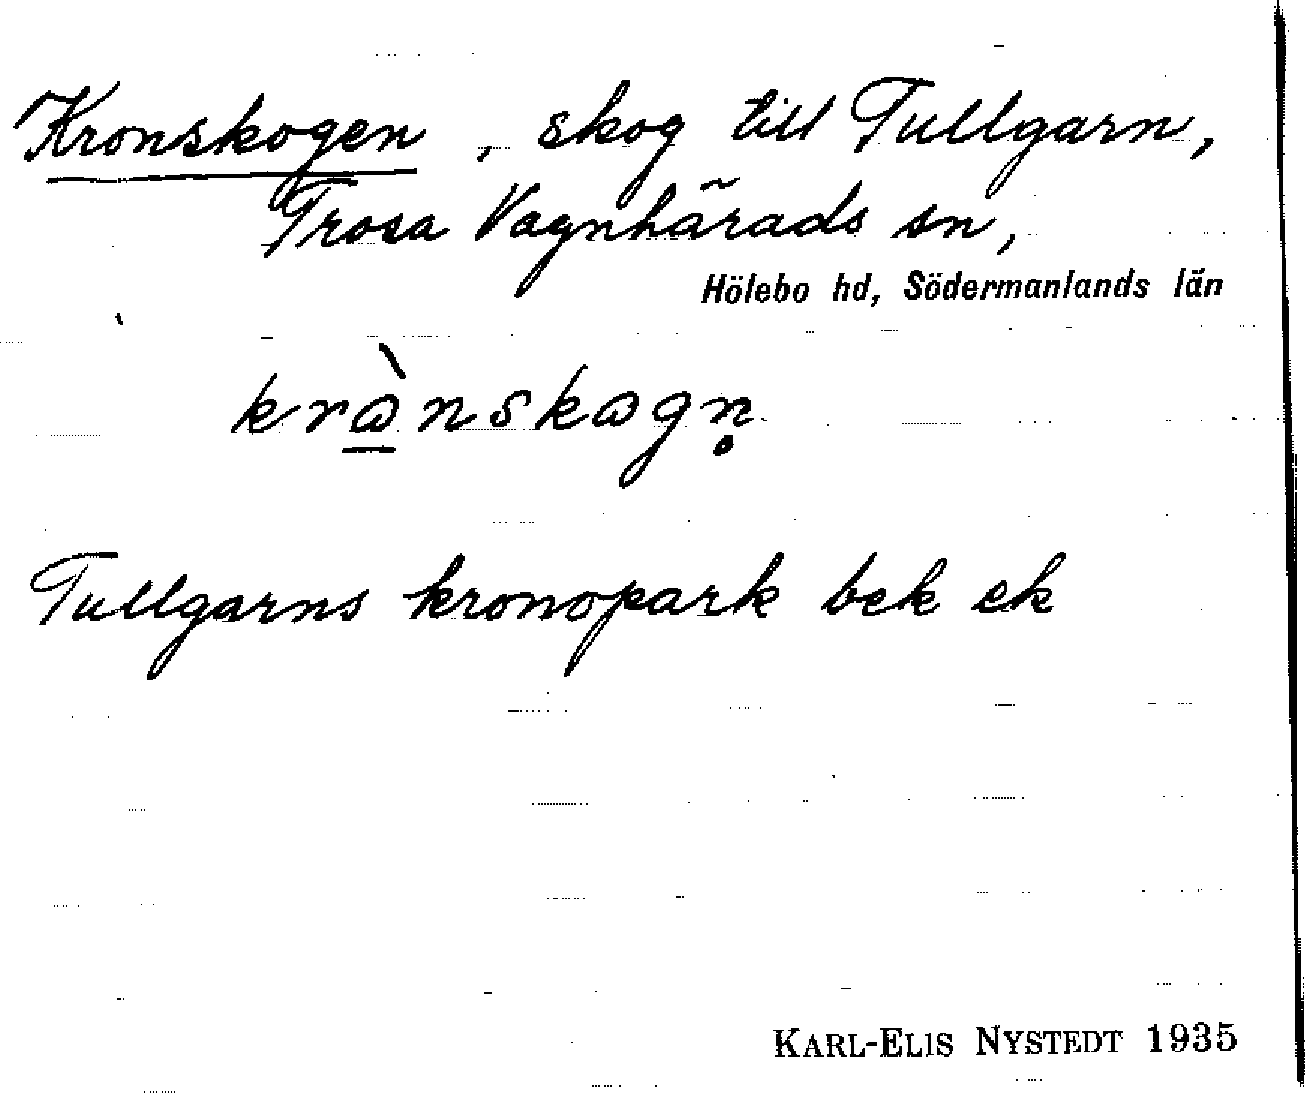 Kronskogen, skog till Tullgarn,
Trosa Vagnhärads sn,
Hölebo hd, Södermanlands län
krɷ̠̀nskɷgṇ
Tullgarns kronopark bek ek
KARL-ELIS NYSTEDT 1935